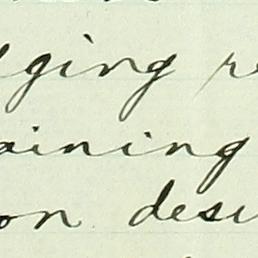 ging r
aining
on desi